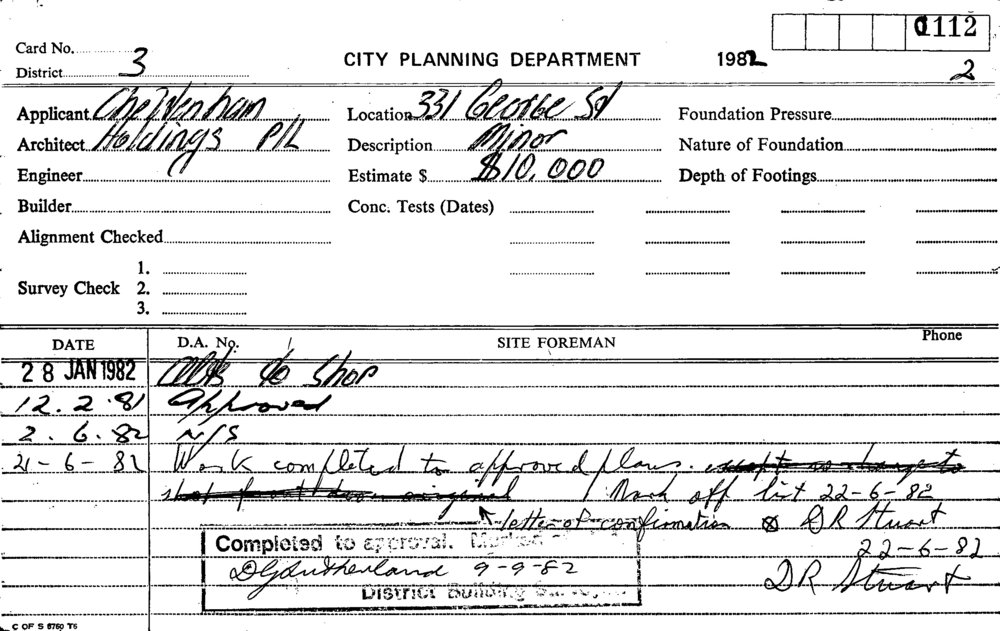 0112
Card No. CITY PLANNING DEPARTMENT 1982
District 3 2
Applicant Cheltenham Location 331 George St Foundation Pressure
Architect Holdings P/L Description Minor Nature of Foundation
Engineer Estimate $ $10,000 Depth of Footings
Builder Conc. Tests (Dates)
Alignment Checked
1.
Survey Check 2.
3.
DATE D.A. No. SITE FOREMAN Phone
28 JAN 1982 Alts to Shop
12.2.81 Approved
2.6.82 N/S
21-6-82 Work completed to approved plans. except no change to
shop front / Mark off list 22-6-82
letter of confirmation DR Stuart
22-6-82
Completed to approval. Marked
DG Sutherland 9-9-82 DR Stuart
District Building Surveyor
C OF S 6760 T6